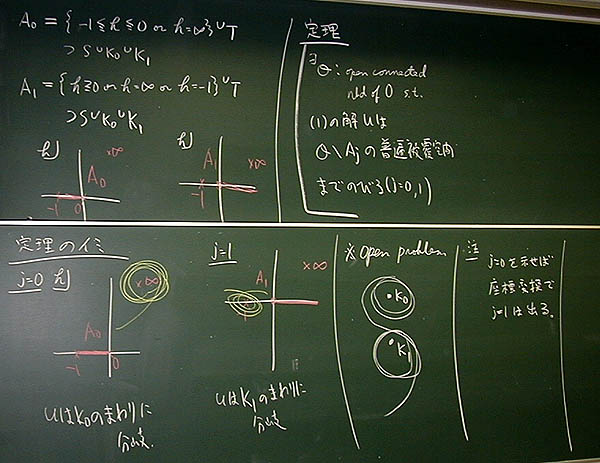 A₀ = { -1 ≦ h ≦ 0 or h = ∞ } ∪ T
⊃ S ∪ K₀ ∪ K₁
A₁ = { h ≧ 0 or h = ∞ or h = -1 } ∪ T
⊃ S ∪ K₀ ∪ K₁
h
×∞
A₀
-1 0
h
A₁
×∞
-1
定理
∃ Θ : open connected
nbd of 0 s.t.
(1)の解 u は
Θ \ Aj の普遍被覆空間
までのびる (j=0,1)
定理のイミ
j=0 h
×∞
A₀
-1 0
uはK₀のまわりに
分岐.
j=1
A₁
×∞
uはK₁のまわりに
分岐
※ open problem
K₀
K₁
注
j=0を示せば
座標変換で
j=1は出る。